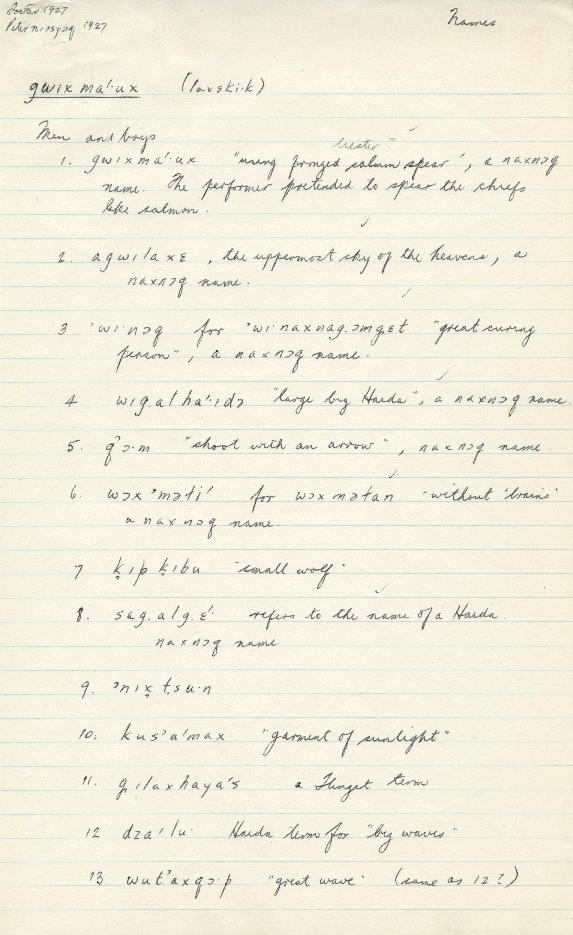 1927
Peter niɔspɔq 1927
Names
gwɪxma'·ux (laxski·k)
Men and boys
1. gwɪxma'·ux "using pronged salmon spear", a naxnɔq
name. The performer pretended to spear the chiefs
like salmon.
2. agwɪlaxɛ, the uppermost sky of the heavens, a
naxnɔq name.
3 'wi·nɔq for 'wi·naxnag.əmgɛt "great curing
person", a naxnɔq name.
4 wɪg.alha'·ɪdə "large big Haida", a naxnɔq name.
5. q'ɔ·m "shoot with an arrow", naxnɔq name.
6. wəx'məti' for wəxmətan "without 'brains'
a naxnɔq name.
7 ḳɪpḳɪbu "small wolf"
8. sag.alg.ɛ'· refers to the name of a Haida
naxnɔq name
9. 'nɪx̣tsu·n
10. kus'a'max "garment of sunlight"
11. g̣ɪlaxhaya's a Tlinget term
12 dza'lu· Haida term for "big waves"
13 wut'axqɔ·p "great wave" (same as 12?)